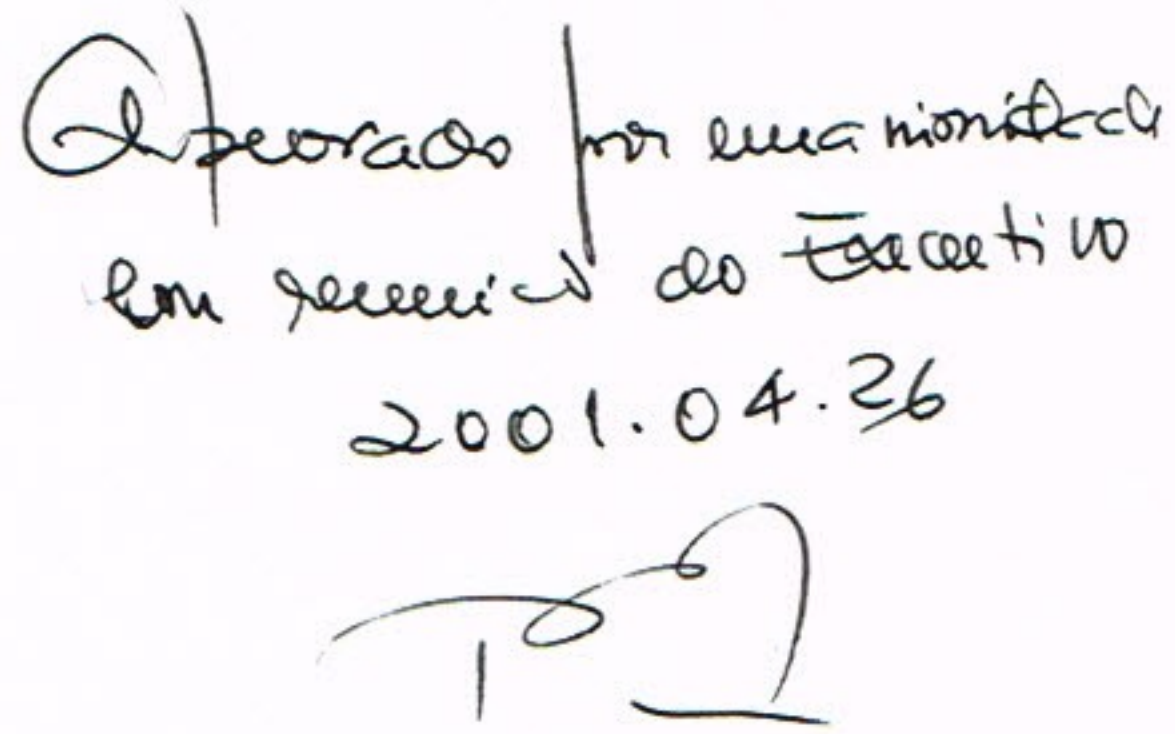 Aprovado por unanimidade
em reunião do Executivo
2001.04.26